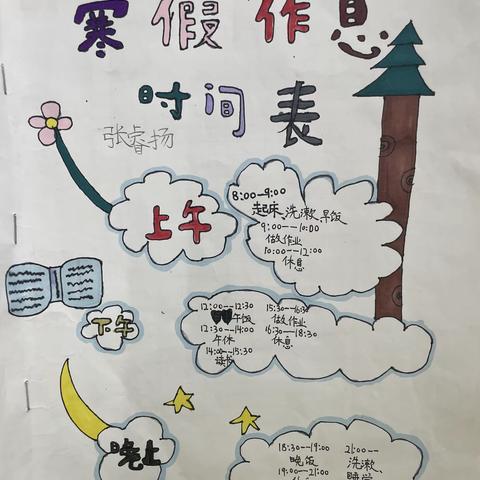 寒假作息
时间表
张睿扬
上午
8:00--9:00
起床、洗漱、早饭
9:00--10:00
做作业
10:00--12:00
休息
下午
12:00--12:30
午饭
12:30--14:00
午休
14:00--15:30
读书
15:30--16:30
做作业
16:30--18:30
休息
晚上
18:30--19:00
晚饭
19:00--21:00
21:00--
洗漱、
睡觉